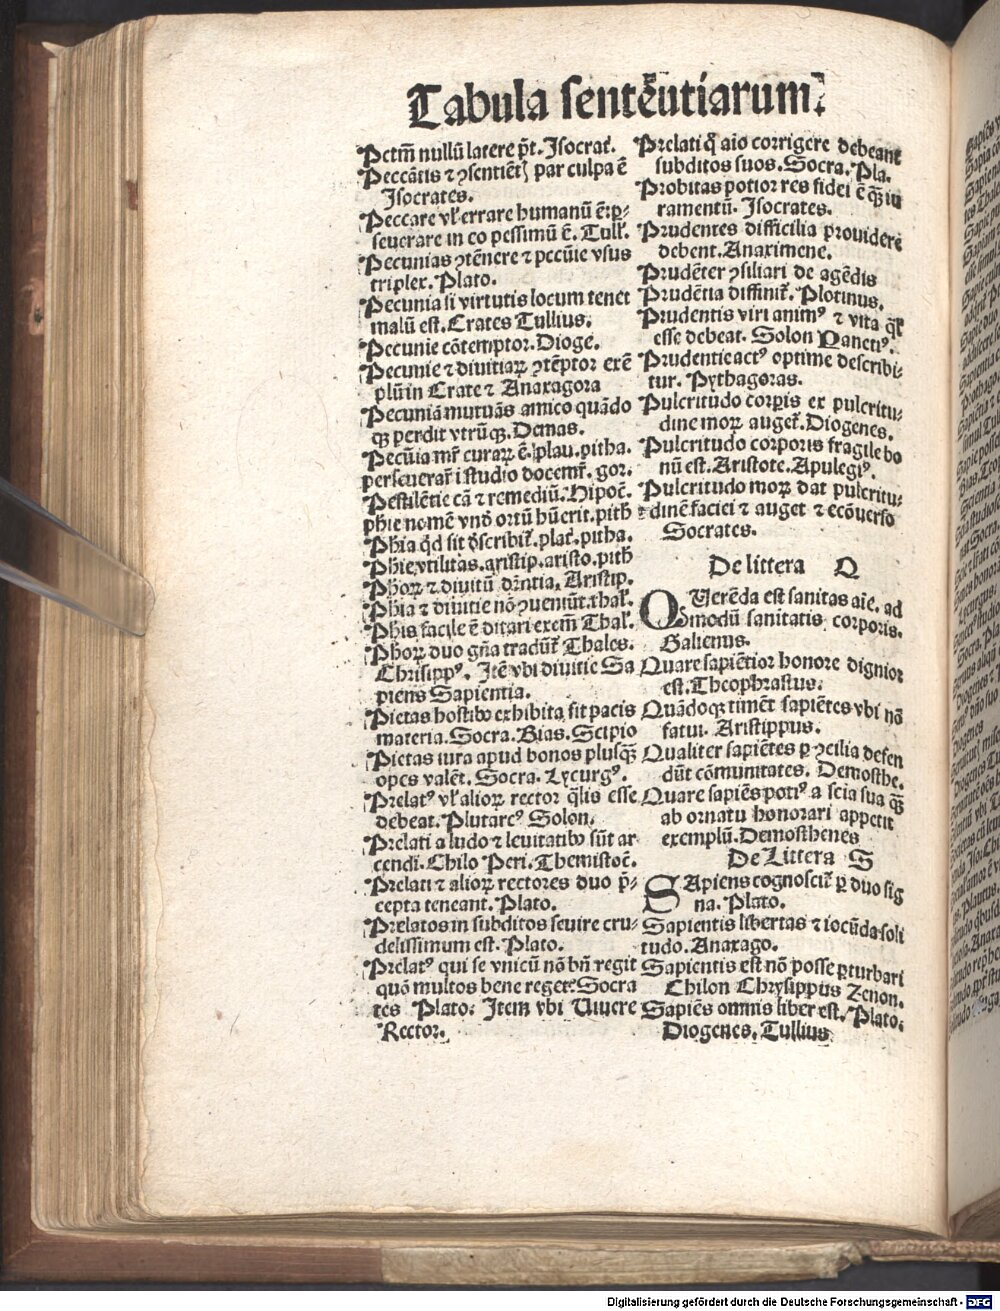 Tabula sentẽutiarum.
Pctm̄ nullū latere p̄t. Isocrat̄.
Peccãtis ⁊ ꝯsentiēt̄ par culpa ē
Isocrates.
Peccare vł errare humanū ē: ꝑ⸗
seuerare in eo pessimū ē. Tull̄.
Pecunias ꝯtēnere ⁊ pecūie vsus
triplex. Plato.
Pecunia si virtutis locum tenet
malū est. Crates Tullius.
Pecunie cōtemptor. Dioge.
Pecunie ⁊ diuitiaꝝ ꝯtēptor exē
plū in Crate ⁊ Anaxagora
Pecuniā mutuās amico quādo
qꝫ perdit vtrūqꝫ. Demas.
Pecūia mr̄ curaꝝ ē. plau. pitha.
perseuerar̄ i studio docemr̄. gor.
Pestilētie cā ⁊ remediū. Hipoc̄.
phie nomē vnd̄ ortū hūerit. pith
Phia qͥd sit d̄scribit̄. plat̄. pitha.
Phie vtilitas. aristip. aristo. pith
Phoꝝ ⁊ diuitū dr̄ntia. Aristip.
Phia ⁊ diuitie nō ꝯueniūt. thal̄.
Phis facile ē ditari exem̄ Thal̄.
Phoꝝ duo gn̄a tradūt̄ Thales.
Chrisippꝰ. Itē vbi diuitie Sa
piens Sapientia.
Pietas hostibꝰ exhibita sit pacis
materia. Socra. Bias. Scipio
Pietas iura apud bonos plusqꝫ̄
opes valēt. Socra. Lycurgꝰ.
Prelatꝰ vł alioꝝ rector qͣlis esse
debeat. Plutarcꝰ Solon.
Prelati a ludo ⁊ leuitatibꝰ sūt ar
cendi. Chilo Peri. Themistoc̄.
Prelati ⁊ alioꝝ rectores duo p̄⸗
cepta teneant. Plato.
Prelatos in subditos seuire cru⸗
delissimum est. Plato.
Prelatꝰ qui se vnicū nō bn̄ regit
quō multos bene reget: Socra
tes Plato. Item vbi Uiuere
Rector.
Prelati qͦ aīo corrigere debeant
subditos suos. Socra. Pla.
Probitas potior res fidei ē qꝫ̄ iu
ramentū. Isocrates.
Prudentes difficilia prouidere
debent. Anaximene.
Prudēter ꝯsiliari de agēdis
Prudētia diffinit̄. Plotinus.
Prudentis viri animꝰ ⁊ vita qͣł
esse debeat. Solon Nanctiꝰ.
Prudentie actꝰ optime describi⸗
tur. Pythagoras.
Pulcritudo corpis ex pulcritu⸗
dine moꝝ auget̄. Diogenes.
Pulcritudo corporis fragile bo
nū est. Aristote. Apulegiꝰ.
Pulcritudo moꝝ dat pulcritu⸗
dinē faciei ⁊ auget ⁊ ecōuerso
Socrates.
De littera Q
QUerēda est sanitas aīe. ad
modū sanitatis corporis.
Galienus.
Quare sapiētior honore dignior
est. Theophrastus.
Quādoqꝫ timēt sapiētes vbi nō
fatui. Aristippus.
Qualiter sapiētes ꝑ ꝯcilia defen
dūt cōmunitates. Demosthe.
Quare sapiēs potiꝰ a scia sua qꝫ̄
ab ornatu honorari appetit
exemplū. Demosthenes
De Littera S
SApiens cognoscit̄ ꝑ duo sig
na. Plato.
Sapientis libertas ⁊ iocūda soli
tudo. Anaxago.
Sapientis est nō posse ꝑturbari
Chilon Chrysippus Zenon.
Sapiēs omnis liber est. Plato.
Diogenes. Tullius
Digitalisierung gefördert durch die Deutsche Forschungsgemeinschaft - DFG